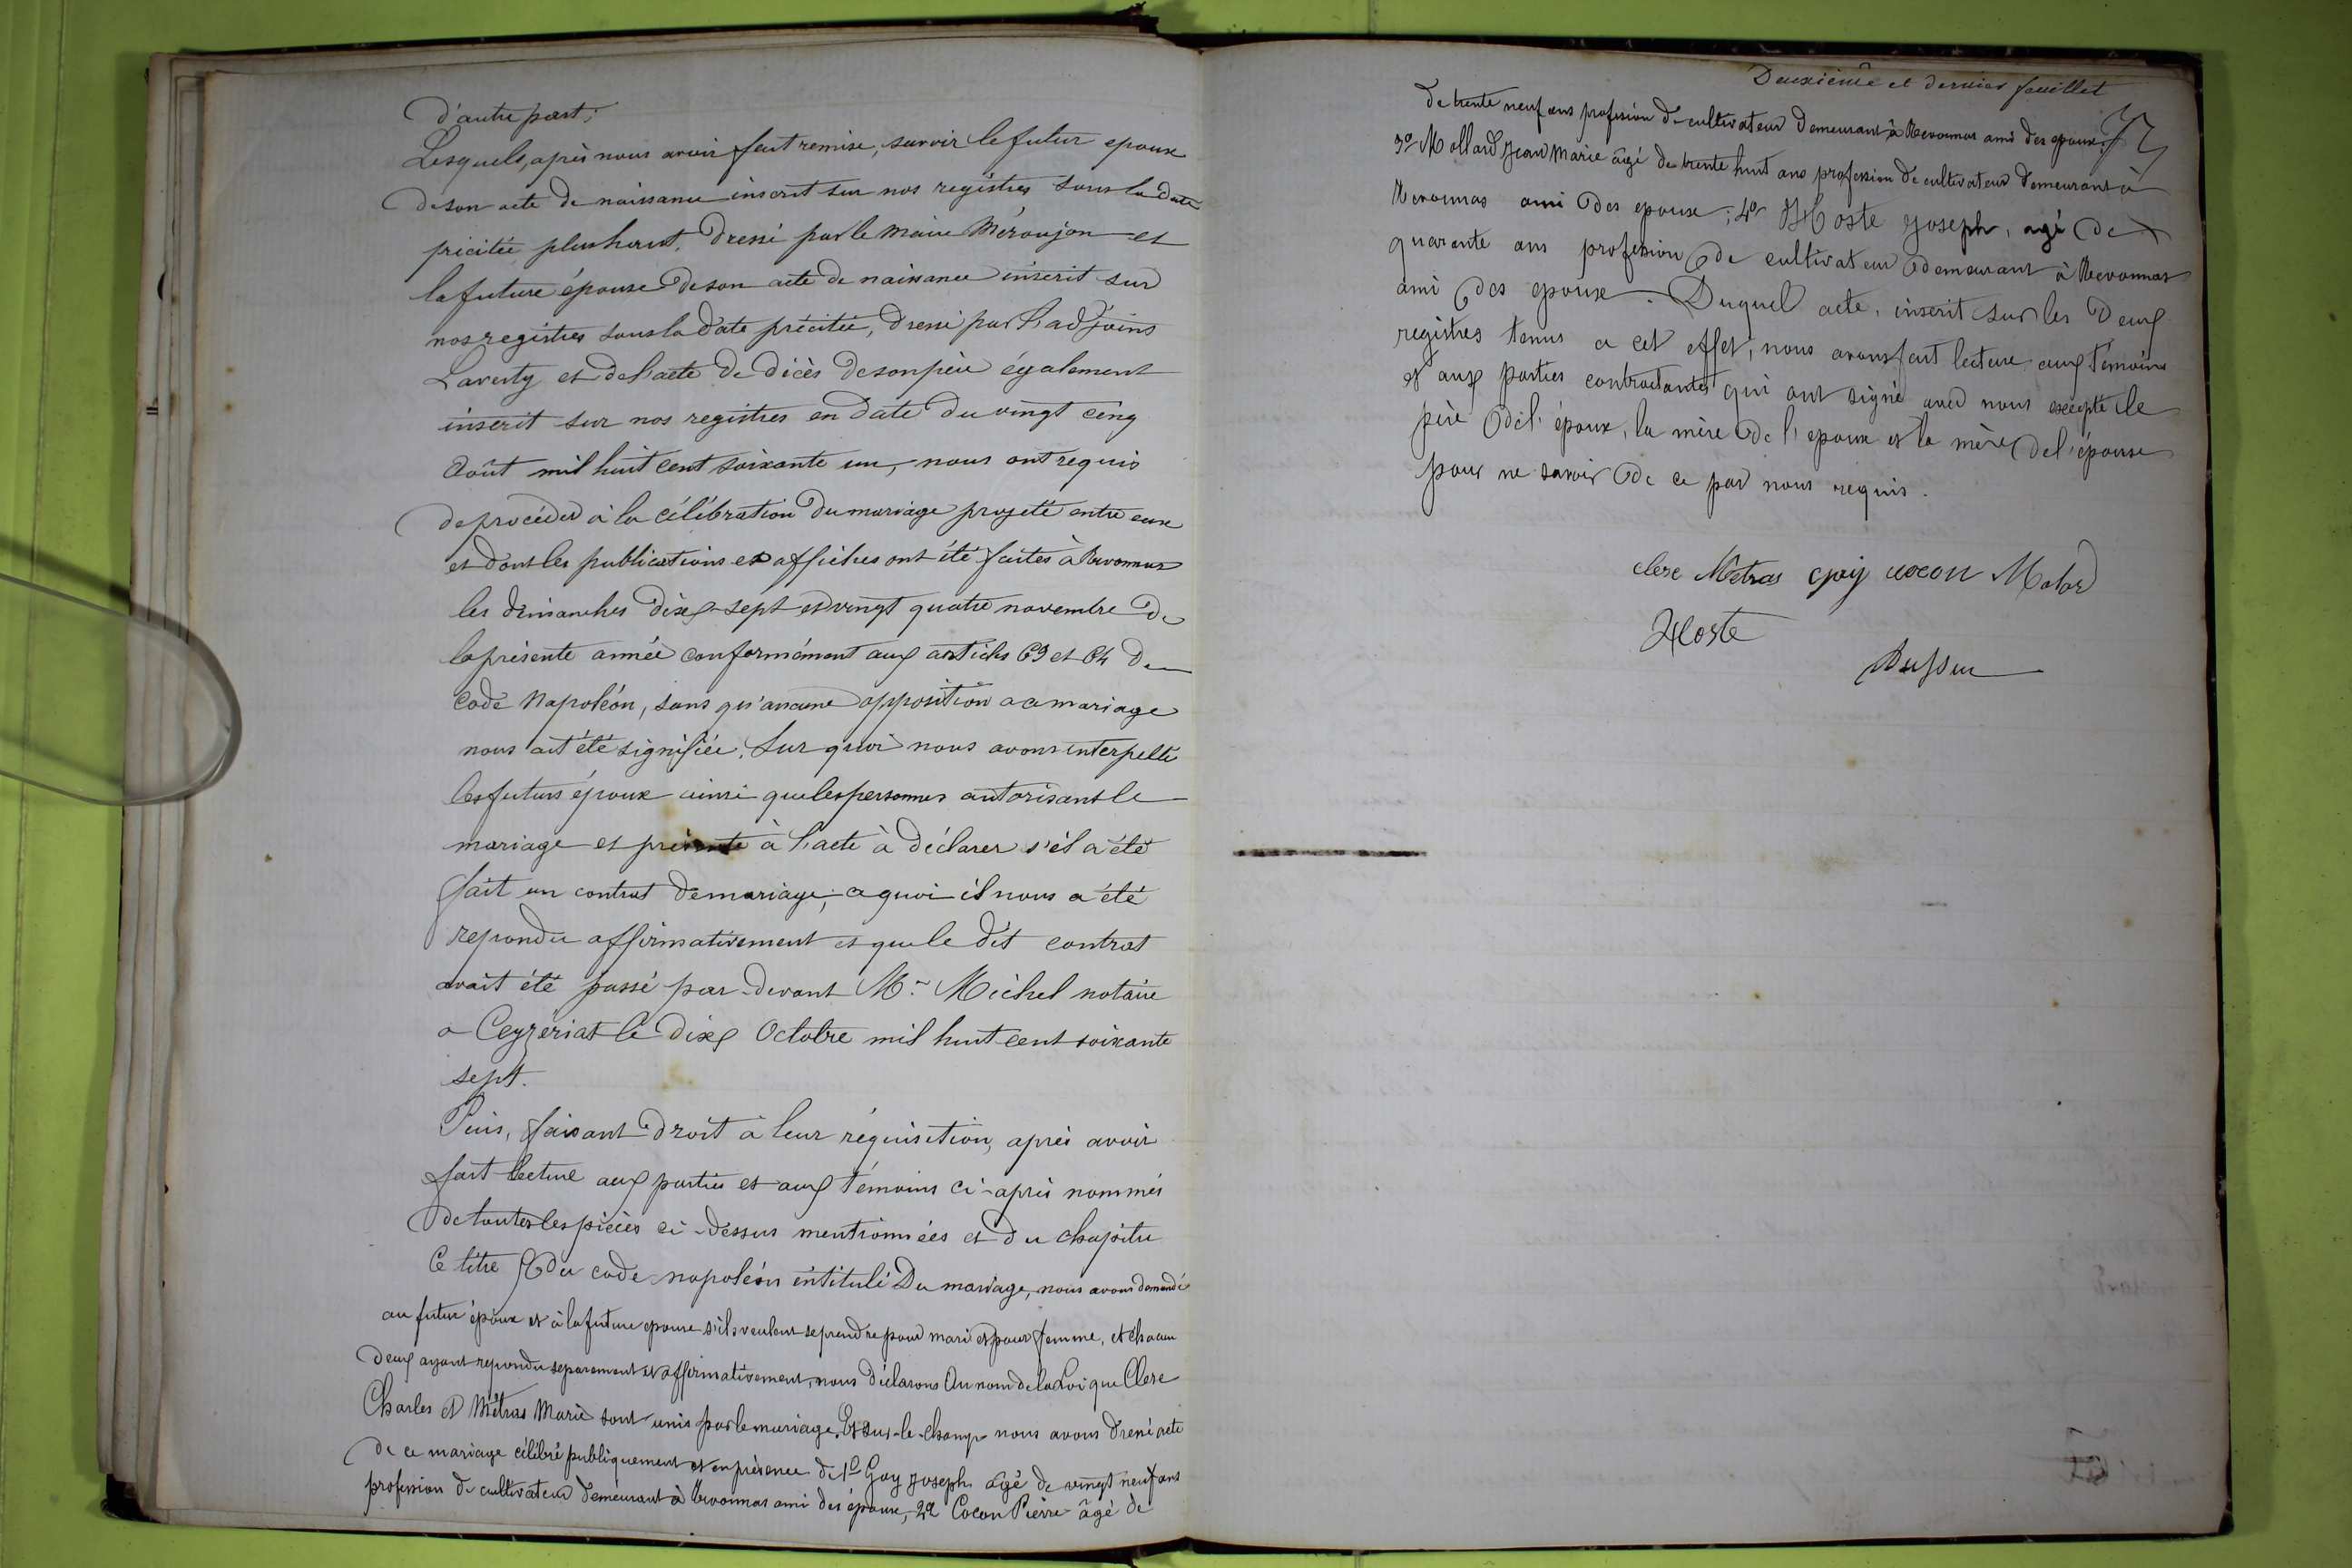 d'autre part;
Lesquels, après nous avoir fait remise, savoir le futur epoux
de son acte de naissance inscrit sur nos registres sous la date
précitée plus haut. Dressé par le Maire Méroujon et
la future épouse de son acte de naissance inscrit sur
nos registres sous la date précitée, dressé par l'adjoins
Laverty et de l'acte de décès de son père également
inscrit sur nos registres en date du vingt cinq
Août mil huit cent soixante un, nous ont requis
de procéder à la célébration du mariage projeté entre eux
et dont les publications et affiches ont été faites à Revonnas
les dimanches dix-sept et vingt quatre novembre de
la présente année conformément aux articles 63 et 64 du
Code Napoléon, sans qu'aucune opposition a ce mariage
nous ait été signifiée. Sur quoi nous avons interpellé
les futurs époux ainsi que les personnes autorisant le
mariage et présente à l'acte à déclarer s'il a été
fait un contrat de mariage; a quoi il nous a été
repondu affirmativement et que le dit contrat
avait été passé par-devant Mr. Michel notaire
a Ceyzeriat le dix Octobre mil huit cent soixante
sept.
Puis, faisant droit à leur réquisition, après avoir
fait lecture aux parties et aux témoins ci-après nommés
de toutes les pièces ci-dessus mentionnées et du chapitre
6 titre 5 du code napoléon intitulé Du mariage, nous avons demandé
au futur époux et à la future epouse s'ils veulent se prendre pour mari et pour femme, et chacun
deux ayant repondu separement et affirmativement, nous déclarons Au nom de la Loi que Clerc
Charles et Métras Marie sont unis par le mariage. Et sur-le-champ nous avons dressé acte
de ce mariage célébré publiquement et en présence de 1o Guy Joseph âgé de vingt neuf ans
profession de cultivateur demeurant à Revonnas ami des époux, 2o Cocon Pierre âgé de
Deuxième et dernier feuillet
de trente neuf ans profession de cultivateur demeurant à Revonnas ami des epoux.
3o Mollard Jean Marie âgé de trente huit ans profession de cultivateur demeurant à
Revonnas ami des epoux; 4o Hoste Joseph, agé de
quarante ans profession de cultivateur demeurant à Revonnas
ami des epoux. Duquel acte, inscrit sur les deux
registres tenus a cet effet, nous avons fait lecture aux témoins
et aux parties contractantes qui ont signé avec nous excepté le
père de l'époux, la mère de l'epoux et la mère de l'épouse
pour ne savoir de ce par nous requis.
clerc Métras guy cocon Molard
Hoste